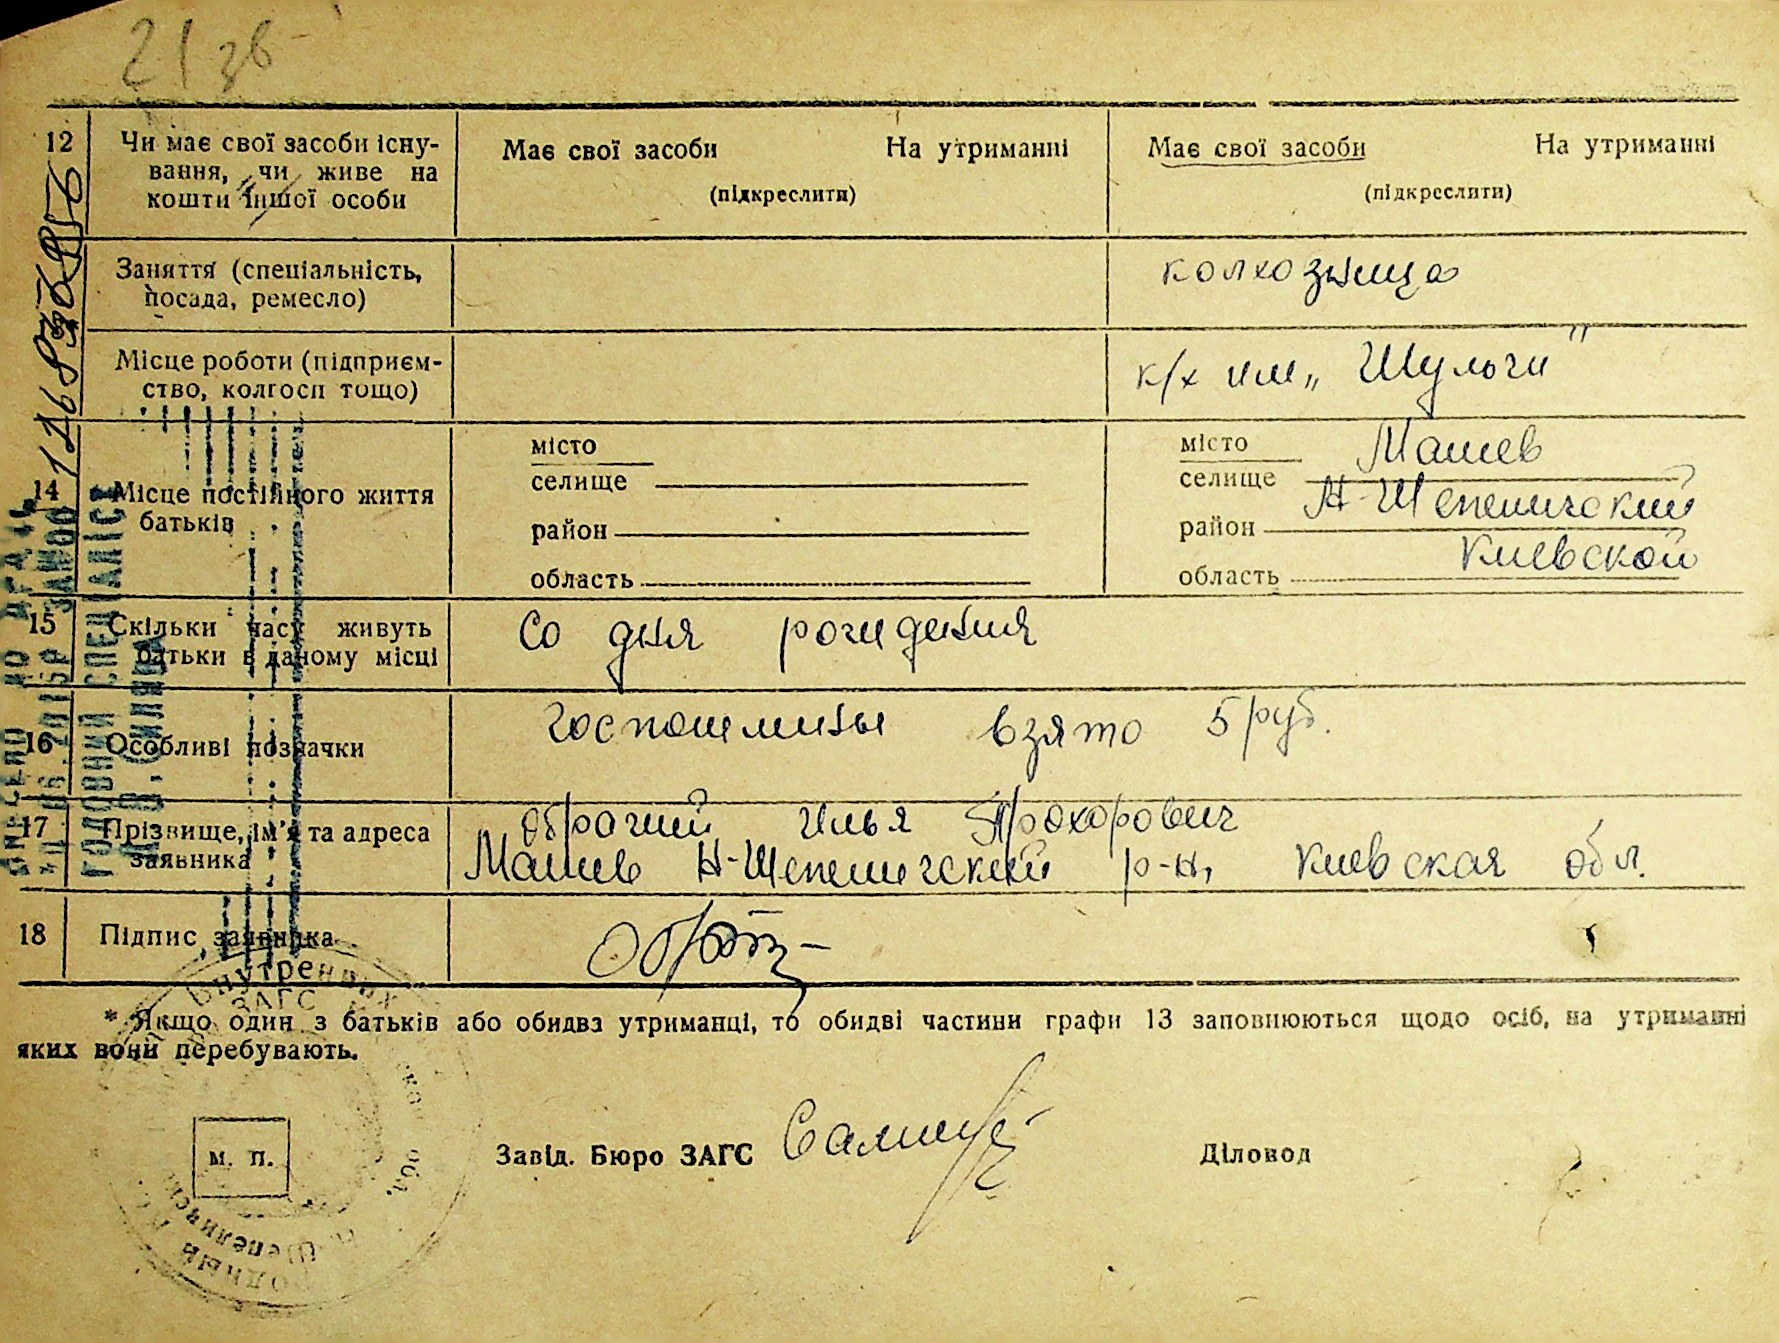 21 зв
12 Чи має свої засоби існу- Має свої засоби На утриманні Має свої засоби На утриманні
вання, чи живе на (підкреслити) (підкреслити)
кошти іншої особи
Заняття (спеціальність, колхозница
посада, ремесло)
Місце роботи (підприєм- к/х им „Шульги"
ство, колгосп тощо)
14 Місце постійного життя місто місто Машев
батьків селище селище
район район Н-Шепеличский
область область Киевской
15 Скільки часу живуть Со дня рождения
батьки в даному місці
16 Особливі позначки госпошлины взято 5 руб.
17 Прізвище, ім'я та адреса Илья Прохорович
заявника Машев Н-Шепеличский р-н, Киевская обл.
18 Підпис заявника
* Якщо один з батьків або обидва утриманці, то обидві частини графи 13 заповнюються щодо осіб, на утриманні
яких вони перебувають.
м. п. Завід. Бюро ЗАГС Діловод
ГОЛОВНИЙ СПЕЦІАЛІСТ
внутренних
ЗАГС
обл.